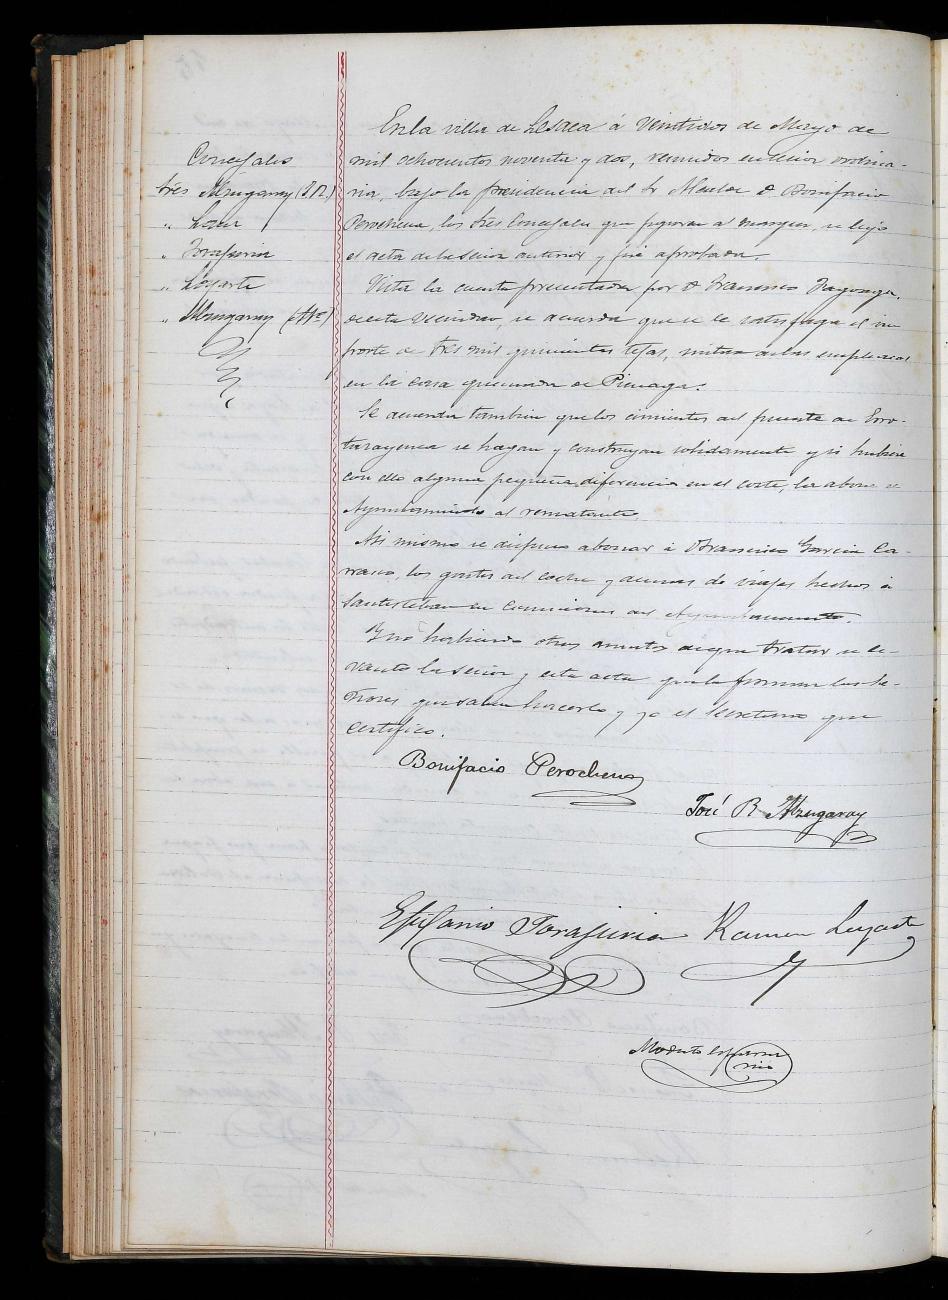 Concejales
tres Alzugaray (J.R.)
" Loza
" Torasuria
" Loyarte
" Alzugaray (Mel)
En la villa de Lesaca á Veintidos de Mayo de
mil ochocientos noventa y dos, reunidos en sesion ordina-
ria, bajo la presidencia del Sr Alcalde Dn Bonifacio
Perochena, los tres Concejales que figuran al margen, se leyó
el acta de la sesion anterior y fué aprobada.
Vista la cuenta presentada por Dn Francisco Fagoaga,
de esta vecindad, se acuerda que se le satisfaga el im
porte de tres mil quinientas tejas, mitad de las empleadas
en la casa quemada de
Se acuerda tambien que los cimientos del puente de Erro-
tarazenea se hagan y construyan solidamente y si hubiera
con ello alguna pequeña diferencia en el coste, la abone el
Ayuntamiento al rematante.
Asi mismo se dispuso abonar á Dn Francisco Garcia Ca-
rrasco, los gastos del coche y demas de viajes hechos á
Santesteban en comisiones del Ayuntamiento.
Y no habiendo otros asuntos de que tratar se le-
vantó la sesion y esta acta que la firman los Se-
ñores que saben hacerlo y yo el Secretario que
certifico.
Bonifacio Perochena
José R. Alzugaray
Estefanio Torasuria Ramon Loyarte
Modesto Esparza
srio